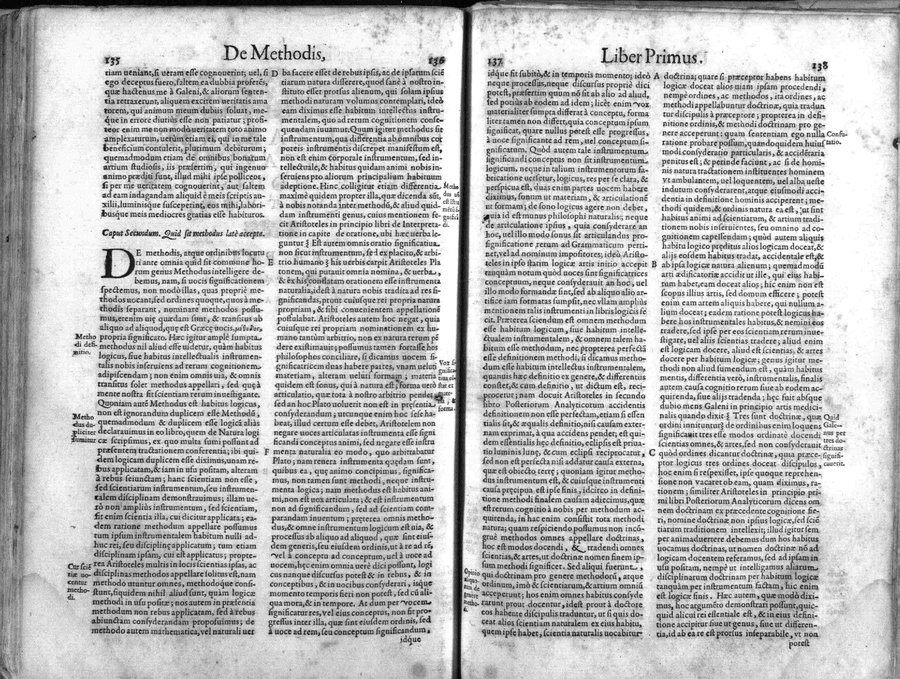 135
De Methodis,
136
riam ueniant, si ueram esse cognouerint; uel, si
ego deceptus fuero, saltem ea dubbia proferes,
quæ hactenus me à Galeni, & aliorum senten-
tia retraxerunt, aliquem excitem ueritatis ama
torem, qui animum meum dubiis soluat, me-
que in errore diutiùs esse non patiatur; profi-
teor enim me non modò ueritatem toto animo
amplexaturum, uerùm etiam ei, qui in me tale
beneficium contulerit, plurimum debiturum;
quemadmodum etiam de omnibus bonatum
artium studiosis, iis præsertim, qui ingenuo
animo præditi sunt, illud mihi ipse polliceor,
si per me ueritatem cognouerint, aut saltem
ad eam indagandam aliquid è meis scriptis au-
xilii, luminisque susceperint, eos mihi, labori-
busque meis mediocres gratias esse habituros.
Caput Secundum. Quid sit methodus latè accepta.
DE methodis, atque ordinibus locutu
ri ante omnia quid sit commune ho-
rum genus Methodus intelligere de-
bemus, nam, si uocis significationem
spectemus, non modò illas, quas propriè me-
thodos uocant, sed ordines quoque, quos à me-
thodis separant, nominare methodos possu-
mus, cùm enim uię quædam sint, & transitus ab
aliquo ad aliquod, quę est Gręcę uocis,
propria significatio. Hæc igitur amplè sumpta
methodus nil aliud esse uidetur, quàm habitus
logicus, siue habitus intellectualis instrumen-
talis nobis inseruiens ad rerum cognitionem
adipiscendam; non enim omnis uia, & omnis
transitus solet methodus appellari, sed quę à
mente nostra fit scientiam rerum inuestigante.
Quoniam autē Methodus est habitus logicus,
non est ignorandum duplicem esse Methodū,
quemadmodum & duplicem esse logicā aliàs
declarauimus in eo libro, quem de Natura logi
cæ scripsimus, ex quo multa sumi possunt ad
præsentem tractationem conferentia; ibi qui-
dem logicam duplicem esse diximus, unam re-
bus applicatam, & iam in usu positam, alteram
à rebus seiunctam; hanc scientiam non esse,
sed scientiarum instrumentum, seu instrumen-
talem disciplinam demonstrauimus; illam ue-
rò non ampliùs instrumentum, sed scientiam,
fit enim scientia illa, cui dicitur applicari; ea-
dem ratione methodum appellare possumus
tum ipsum instrumentalem habitum nulli ad-
huc rei, seu disciplinę applicatum; tum etiam
disciplinam ipsam, cui est applicatus; propte-
rea Aristoteles multis in locis scientias ipsas, ac
disciplinas methodos appellare solitus est, nam
methodo utuntur omnes, methodoque con-
stant, siquidem nihil aliud sunt, quàm logicæ
methodi in usu positæ; nos autem in præsentia
methodum non rebus applicatam, sed à rebus
abiunctam considerandam proposuimus; de
methodo autem mathematica, vel naturali uer
Methodi
defi-
nitio.
Metho
dus du-
pliciter
sumitur
Cur sciē
tiæ uo-
centur
metho-
di.
D
E
F
ba facere esset de rebus ipsis, ac de ipsarum sciē
tiarum natura disserere, quod sanè à nostro in-
stituto esset prorsus alienum, qui solam ipsius
methodi naturam volumus contemplari, ideo
eam diximus esse habitum intellectus instru-
mentalem, quo ad rerum cognitionem conse-
quendam iuuamur. Quum igitur methodus sit
instrumentum, qua differentia ab omnibus cor-
poreis instrumentis discrepet manifestum est,
non est enim corporale instrumentum, sed in-
tellectuale, & habitus quidam animi nobis in-
seruiens pro aliorum principalium habituum
adeptione. Hinc colligitur etiam differentia,
maximè quidem propter illa, quæ dicenda sūt,
à nobis notanda inter methodū, & aliud quid-
dam instrumenti genus, cuius mentionem fe-
cit Aristoteles in principio libri de Interpreta-
tione in capite de oratione, ubi hæc uerba le-
guntur [Est autem omnis oratio significatiua,
non sicut instrumentum, sed ex placito, & arbi-
trio humano] his verbis carpit Aristoteles Pla
tonem, qui putauit omnia nomina, & uerba,
& ex his constatam orationem esse instrumenta
naturalia, idest à natura nobis tradita ad res si-
gnificandas, prout cuiusque rei propria natura
propriam, & sibi conuenientem appellationē
postulabat. Aristoteles autem hoc negat, quia
cuiusque rei propriam nominationem ex hu-
mano tantùm arbitrio, non ex natura rerum pē
dere existimauit; possumus tamen fortasse hos
philosophos conciliare, si dicamus vocem si-
gnificatricem duas habere partes, vnam ueluti
materiam, alteram ueluti formam; materia
quidem est sonus, qui à natura est, forma uerò
articulatio, quæ tota à nostro arbitrio pendet,
sed an hoc Plato uoluerit non est in præsentia
consyderandum; utcunque enim hoc sese ha-
beat, illud certum esse debet, Aristotelem non
negare uoces articulatas instrumenta esse signi
ficandi conceptus animi, sed negare esse instru
menta naturalia eo modo, quo arbitrabatur
Plato; nam reuera instrumenta quędam sunt,
quibus ea, quę animo concipimus, significa-
mus, non tamen sunt methodi, neque instru-
menta logica; nam methodus est habitus ani-
mi, non est vox articulata; & est instrumentum
non ad significandum, sed ad scientiam com-
parandam inuentum; pręterea omnis metho-
dus, & omne instrumentum logicum est uia, &
processus ab aliquo ad aliquod, quæ sint eius-
dem generis, seu eiusdem ordinis, ut à re ad rē,
vel à conceptu ad conceptum, vel à uoce ad
uocem, hęc enim omnia uerè dici possunt, logi
cus nanque discursus potest & in rebus, & in
conceptibus, & in uocibus considerari, isque
momento temporis fieri non potest, sed cū ali-
qua mora, & in tempore. At dum per vocem
significatur res, vel eius conceptus, non fit pro-
gressus inter illa, quæ sint eiusdem ordinis, sed
à uoce ad rem, seu conceptum significandum,
idque
137
Liber Primus.
138
idque fit subitò, & in temporis momento; ideò
neque processus, neque discursus propriè dici
potest, præsertim quum nō sit ab alio ad aliud,
sed potiùs ab eodem ad idem; licèt enim vox
materialiter sumpta differat à conceptu, forma
liter tamen non differt, quia conceptum ipsum
significat, quare nullus potest esse progressus,
à uoce significante ad rem, uel conceptum si-
gnificatum. Quòd autem tale instrumentum
significandi conceptus non sit instrumentum
logicum, neque in talium instrumentorum fa-
bricatione uersetur, logicus, res per se clara, &
perspicua est, duas enim partes uocem habere
diximus, sonum ut materiam, & articulationē
ut formam; de sono logicus agere non debet,
quia id est munus philosophi naturalis; neque
de articulatione ipsius, quia consyderare an
hoc, uel illo modo soni sint articulandos pro
significatione rerum ad Grammaticum perti-
net, vel ad nominum impositores; ideò Aristo-
teles in ipso statim logicæ artis initio accepit
tanquàm notum quòd uoces sint significatrices
conceptuum, neque considerauit an hoc, uel
illo modo formandæ sint, sed ab aliquo alio ar-
tifice iam formatas sumpsit, nec ullam ampliùs
mentionem talis instrumenti in libris logicis fe
cit. Præterea scientiam est omnem methodum
esse habitum logicum, siue habitum intelle-
ctualem instrumentalem, & omnem talem ha-
bitum esse methodum, nec propterea perfecta
esse definitionem methodi, si dicamus metho-
dum esse habitum intellectus instrumentalem,
quamuis hæc definitio ex genere, & differentiis
constet, & cum definito, ut dictum est, reci-
procetur; nam docuit Aristoteles in secundo
libro Posteriorum Analyticorum accidentis
definitionem non esse perfectam, etiam si essen
tialis sit, & æqualis definitio, nisi causam exter-
nam exprimat, à qua accidens pendet; est qui-
dem essentialis hęc definitio, eclipsis est priua-
tio luminis lunę, & cum eclipsi reciprocatur,
sed non est perfecta nisi addatur causa externa,
quæ est obiectu terrę; quoniam igitur metho-
dus instrumentum est, & cuiusque instrumenti
causa pręcipua est ipse finis, idcirco in defini-
tione methodi finalem causam adiecimus, quæ
est rerum cognitio à nobis per methodum ac
quirenda, in hac enim consistit tota methodi
natura; quam respiciendo possumus non incō-
gruè methodos omnes appellare doctrinas,
hoc est modos docendi, & tradendi omnes
scientias, & artes, ut doctrinæ nomen finem ip-
sum methodi significet. Sed aliqui fuerunt,
qui doctrinam pro genere methodorū, atque
ordinum, imò & scientiarum, & artium omniū
acceperunt; hos enim omnes habitus consyde
rarunt prout docentur, idest prout à doctore
eos habente discipulis traduntur, ut si quis do-
ceat alios scientiam naturalem ea eius habitu,
quem ipse habet, scientia naturalis uocabitur
Metho
dus nō
est istru
mentū
signifi-
cādi.
Vox si-
gnificā-
tis, ma-
teria, &
forma.
Opinio
aliquo-
rum de
genere
metho.
A
B
C
doctrina; quare si præceptor habens habitum
logicæ doceat alios uiam ipsam procedendi,
nempe ordines, ac methodos, ita ordines, ac
methodi appellabuntur doctrinæ, quia tradun
tur discipulis à præceptore; propterea in defini-
tione ordinis, & methodi doctrinam pro ge-
nere acceperunt: quam sententiam ego nulla
ratione probare possum, quandoquidem huius
modi consyderatio particularis, & accidētaria
penitus est; & perinde faciunt, ac si de homi-
nis natura tractationem instituentes hominem
vt ambulantem, vel loquentem, vel alba ueste
indutum consyderarent, atque eiusmodi acci-
dentia in definitione hominis acciperent; me-
thodi quidem, & ordinis natura ea est, ut sint
habitus animi ad scientiarum, & artium tradi-
tionem nobis inseruientes, seu omnino ad co-
gnitionem capessendam; quòd autem aliquis
habitu logico præditus alios logicam doceat,&
aliis eosdem habitus tradat, accidentale est, &
ab ipsa logicæ natura alienum; quemadmodū
arti ædificatoriæ accidit ut ille, qui eius habi-
tum habet, eam doceat alios; hic enim non est
scopus illius artis, sed domum efficere; potest
enim eam artem aliquis habere, qui nullum a-
lium doceat; eadem ratione potest logicus ha-
bere in se hos instrumentales habitus, & nemini eos
tradere, sed ipse per eos scientiam rerum inue-
stigare, uel alias scientias tradere; aliud enim
est logicam docere, aliud est scientias, & artes
docere per habitum logicæ; genus igitur me-
thodi non aliud sumendum est, quàm habitus
mentis, differentia verò instrumentalis, finalis
autem causa cognitio rerum siue ab eodem ac
quirenda, siue alijs tradenda; hęc fuit absque
dubio mens Galeni in principio artis medici-
nalis quando dixit [Tres sunt doctrinæ, quæ
ordini innituntur] de ordinibus enim loquens
significauit tres esse modos ordinatè docendi
scientias omnes, & artes, sed non considerauit
quòd ordines dicantur doctrinæ, quia præce-
ptor logicus tres ordines doceat discipulos,
cùm enim si respexisset, ipse quoque reprehen-
sione non vacaret ob eam, quam diximus, ra-
tionem; similiter Aristoteles in principio pri-
mi libri Posteriorum Analyticorum dicens om
nem doctrinam ex præcedente cognitione fie-
ri, nomine doctrinæ non ipsius logicę, sed sciē
tiarum traditionem intellexit; illud igitur sem
per animaduertere debemus dum hos habitus
uocamus doctrinas, ut nomen doctrinæ nō ad
logicam docentem referamus, sed ad ipsam in-
usu positam, nempè ut intelligamus aliarum
disciplinarum doctrinam per habitum logicæ
tanquam per instrumentum factam, hic enim
est logicæ finis. Hæc autem, quæ modò dixi-
mus, hoc argumēto demonstrari possunt, quic-
quid alicui rei essentiale est, & in eius defini-
tione accipitur siue ut genus, siue ut differen-
tia, id ab ea re est prorsus inseparabile, vt non
potest
Confu-
tatio.
Quid
Gale-
nus per
tres do-
ctrinas
signifi-
cauerit.